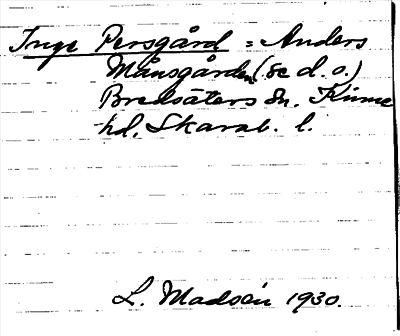 Inge Persgård = Anders
Månsgården (se d. o.)
Bredsäters sn. Kinne
hd, Skarab. l.
L. Madsén 1930.